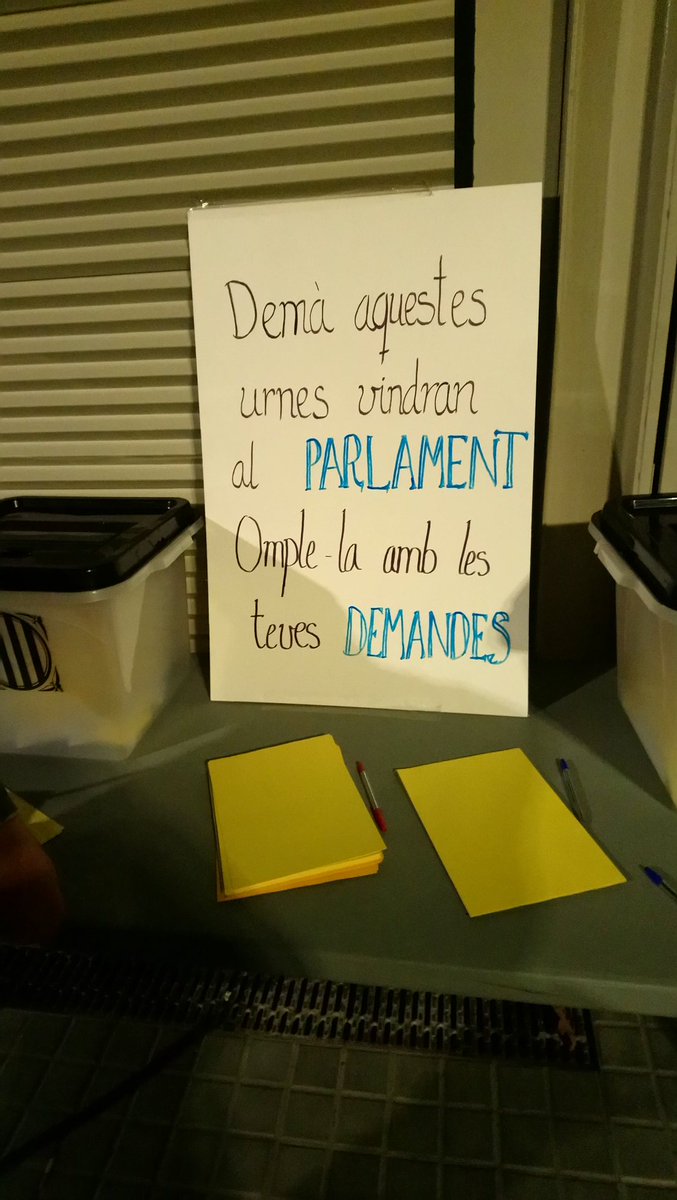 Demà aquestes
urnes vindran
al PARLAMENT
Omple-la amb les
teves DEMANDES